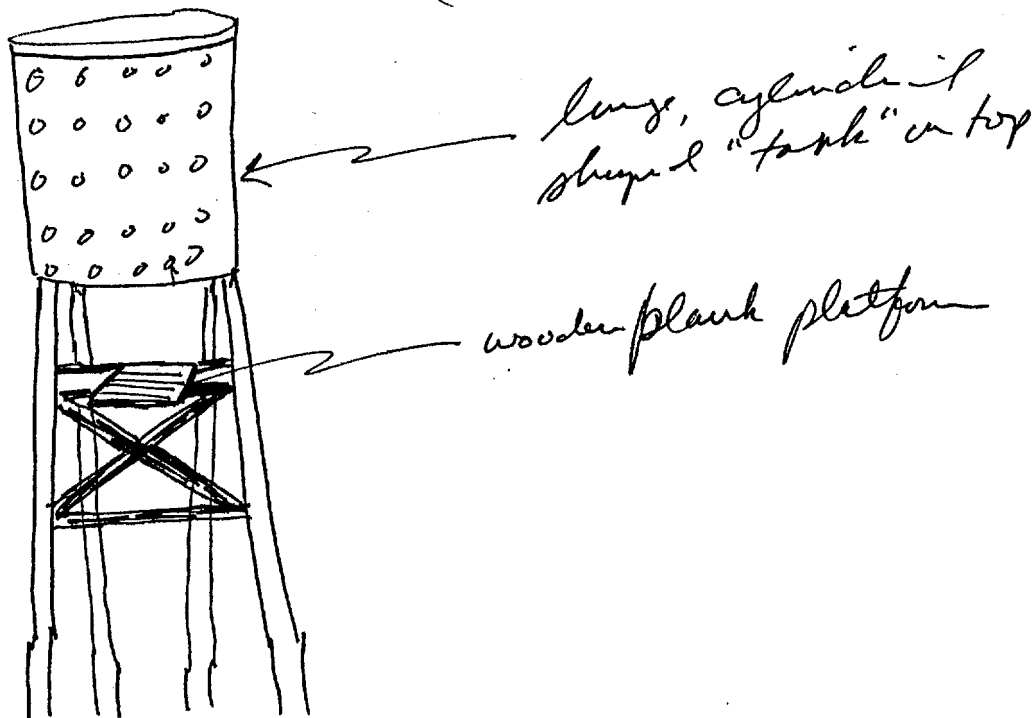 large, cylindrical
shaped "tank" on top
wooden plank platform